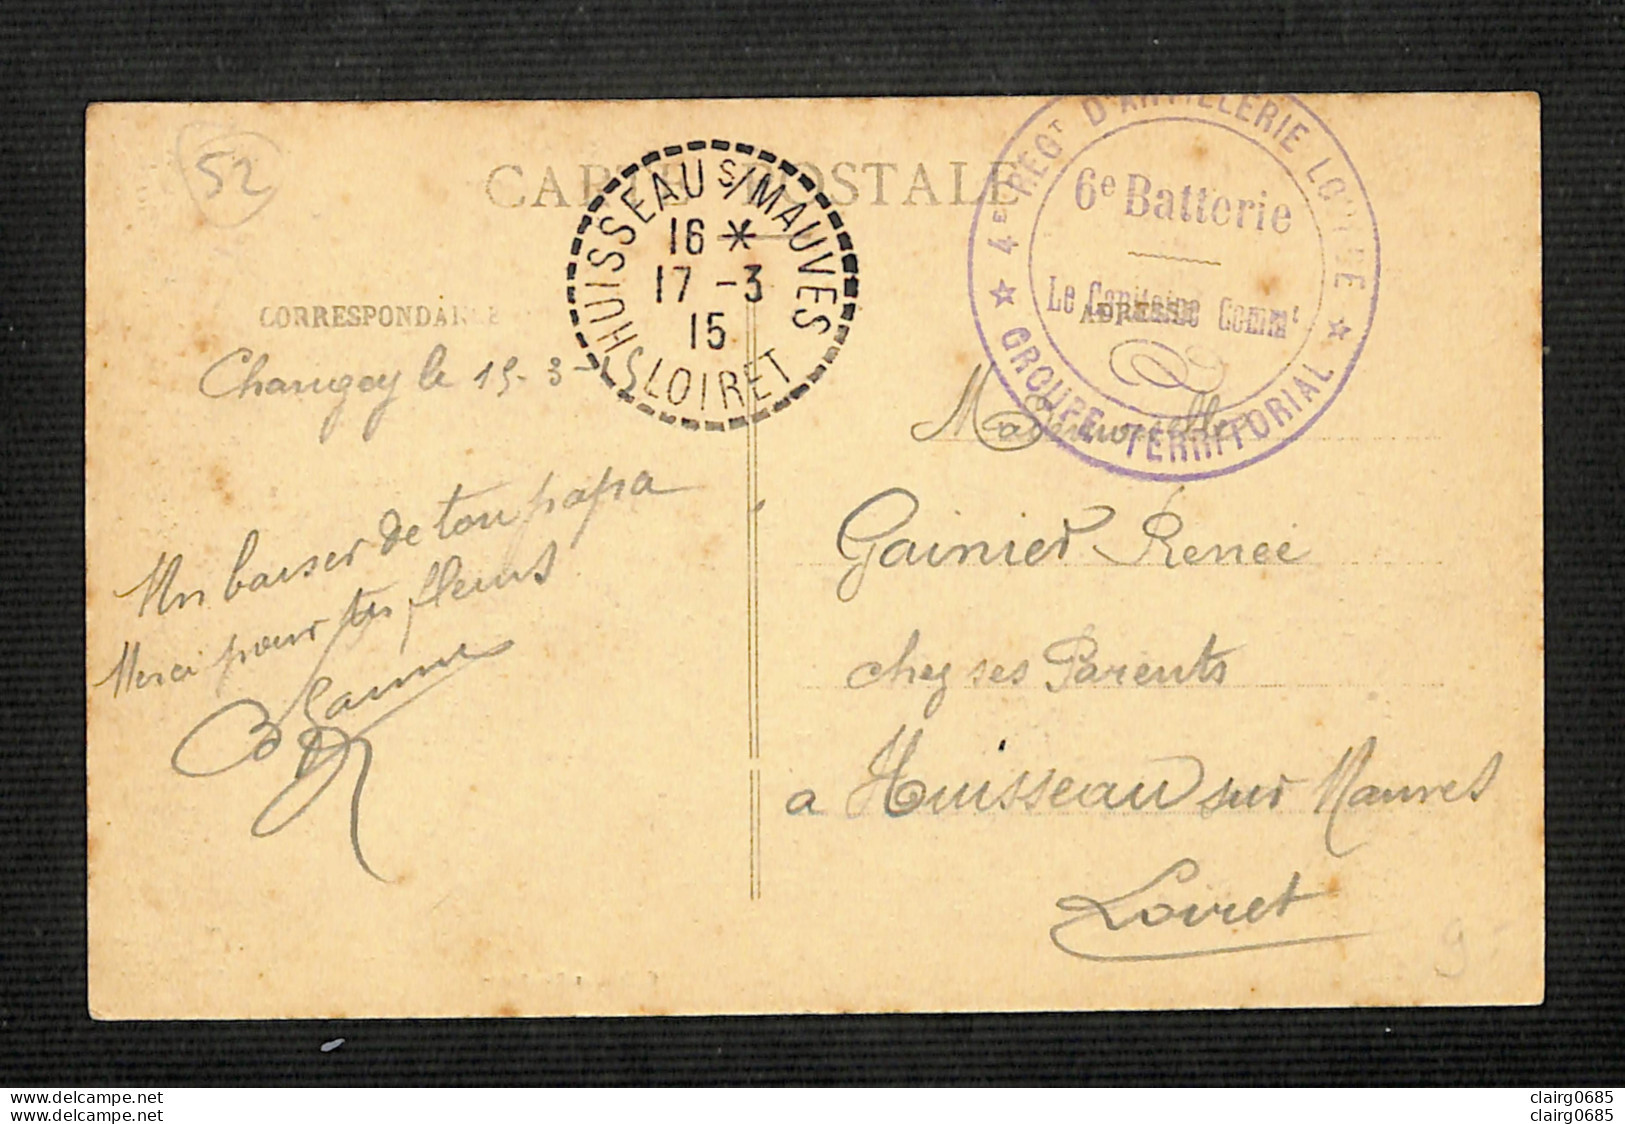 52
CARTE POSTALE
HUISSEAU S/ MAUVES
16 *
17 -3
15
LOIRET
4E REGT D'ARTILLERIE LOURDE
6e Batterie
Le Capitaine Commt
★ GROUPE TERRITORIAL ★
CORRESPONDANCE
ADRESSE
Changey le 15-3-15
Un baiser de ton papa
Merci pour tes fleurs
Mademoiselle
Gainier Renée
chez ses Parents
a Huisseau sur Mauves
Loiret
9-
www.delcampe.net
www.delcampe.net
clairg0685
clairg0685